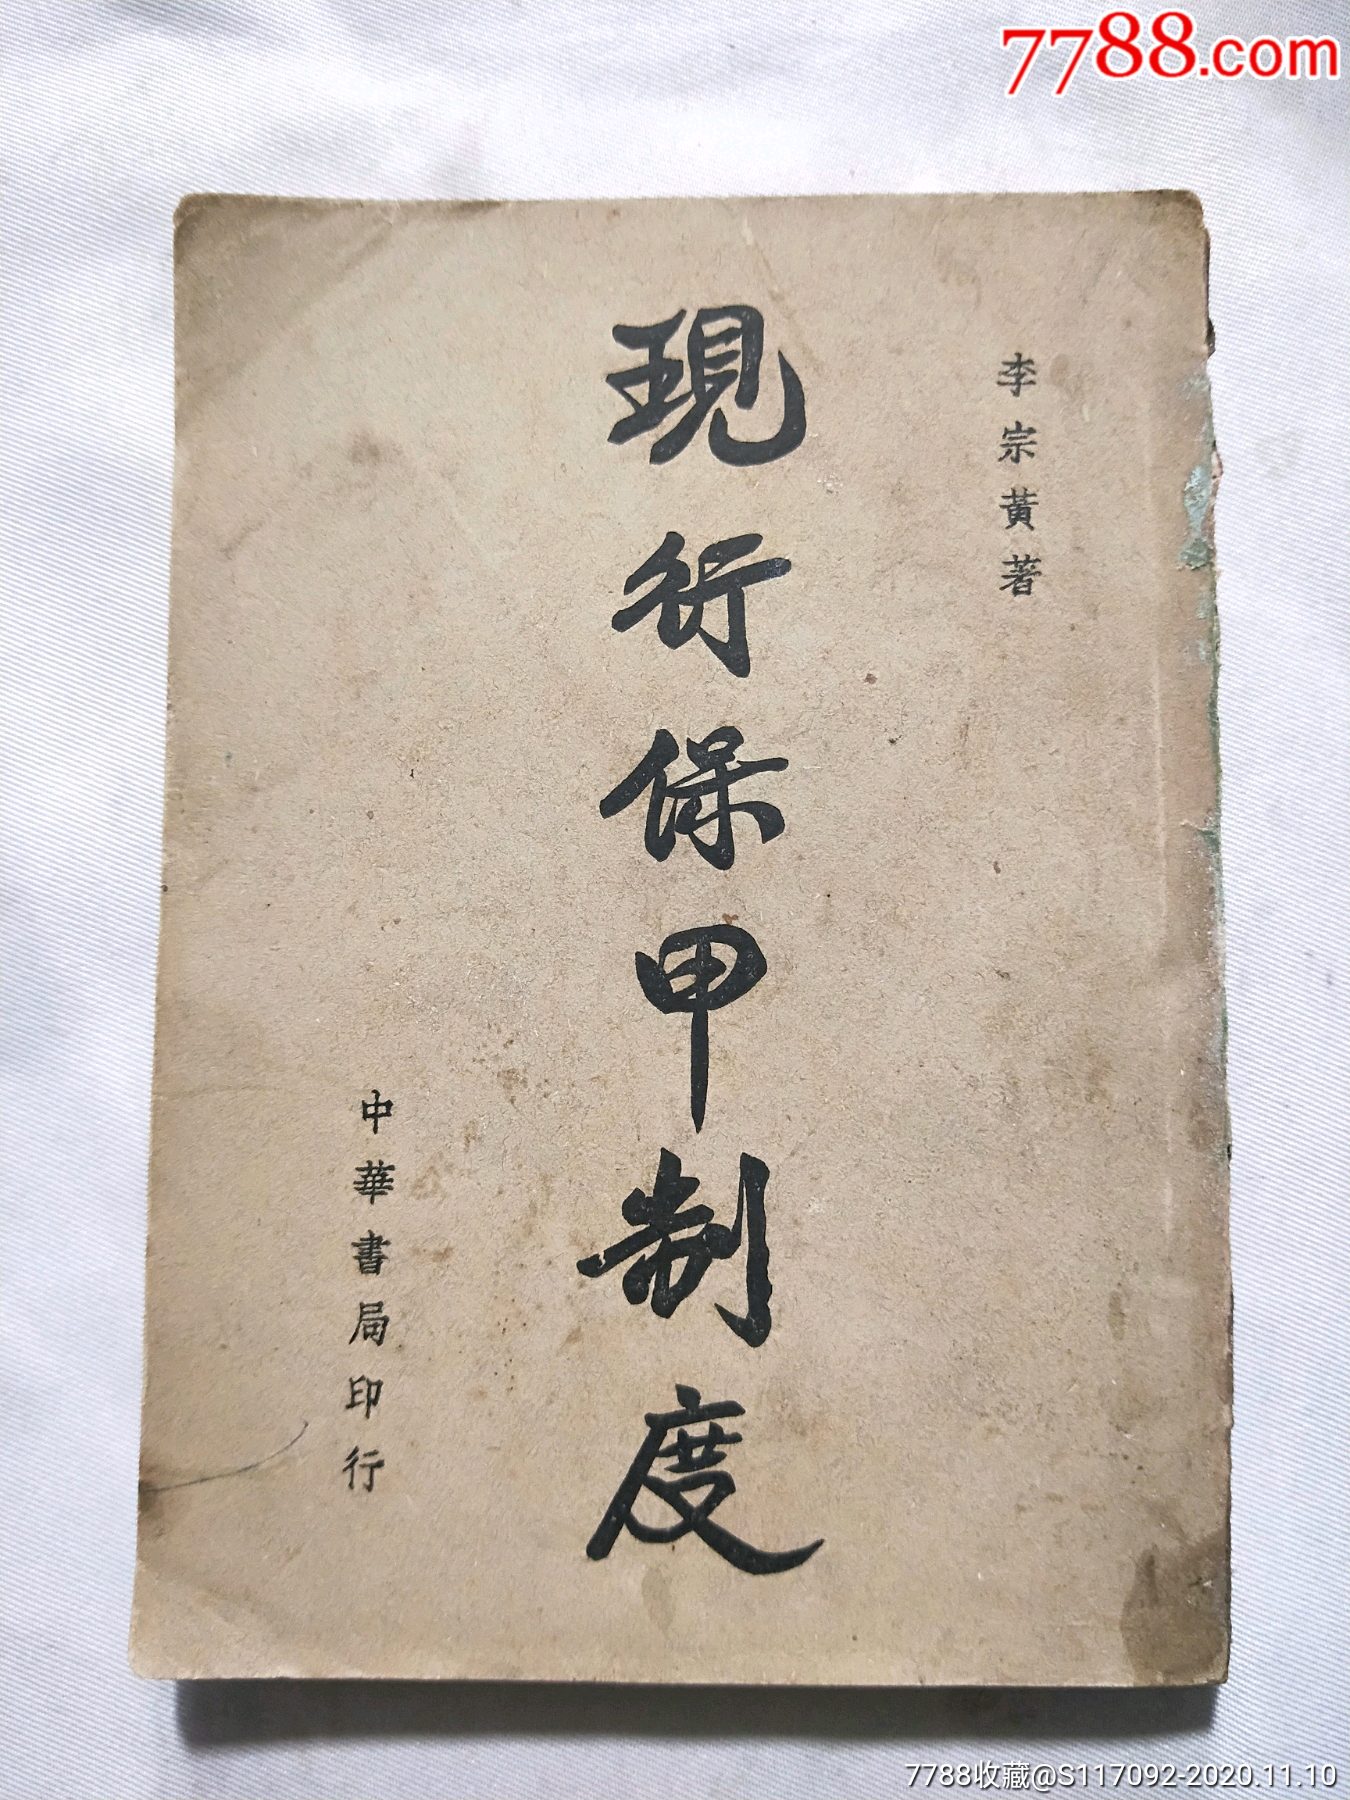 7788.com
李宗黃著
現行保甲制度
中華書局印行
7788收藏@S117092-2020.11.10